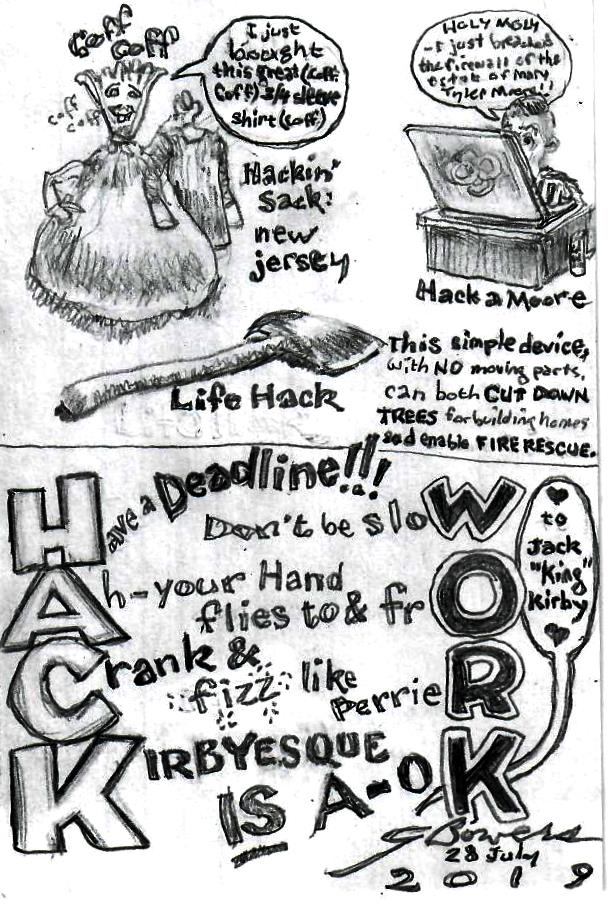 Coff
Coff
coff
coff
I just
bought
this great (coff
coff) 3/4 sleeve
shirt (coff)
Hackin'
Sack:
new
jersey
HOLY MOLY
- I just breached
the firewall of the
estate of Mary
Tyler Moore!!
Hack a Moore
Life Hack
This simple device,
with NO moving parts,
can both CUT DOWN
TREES for building homes
and enable FIRE RESCUE.
Have a Deadline!!!
Don't be sloW
Ah-your Hand
flies to & frO
Crank &
fizz like
PerrieR
KIRBYESQUE
IS A-OK
to
Jack
"King"
Kirby
G Bowers
28 July
2019